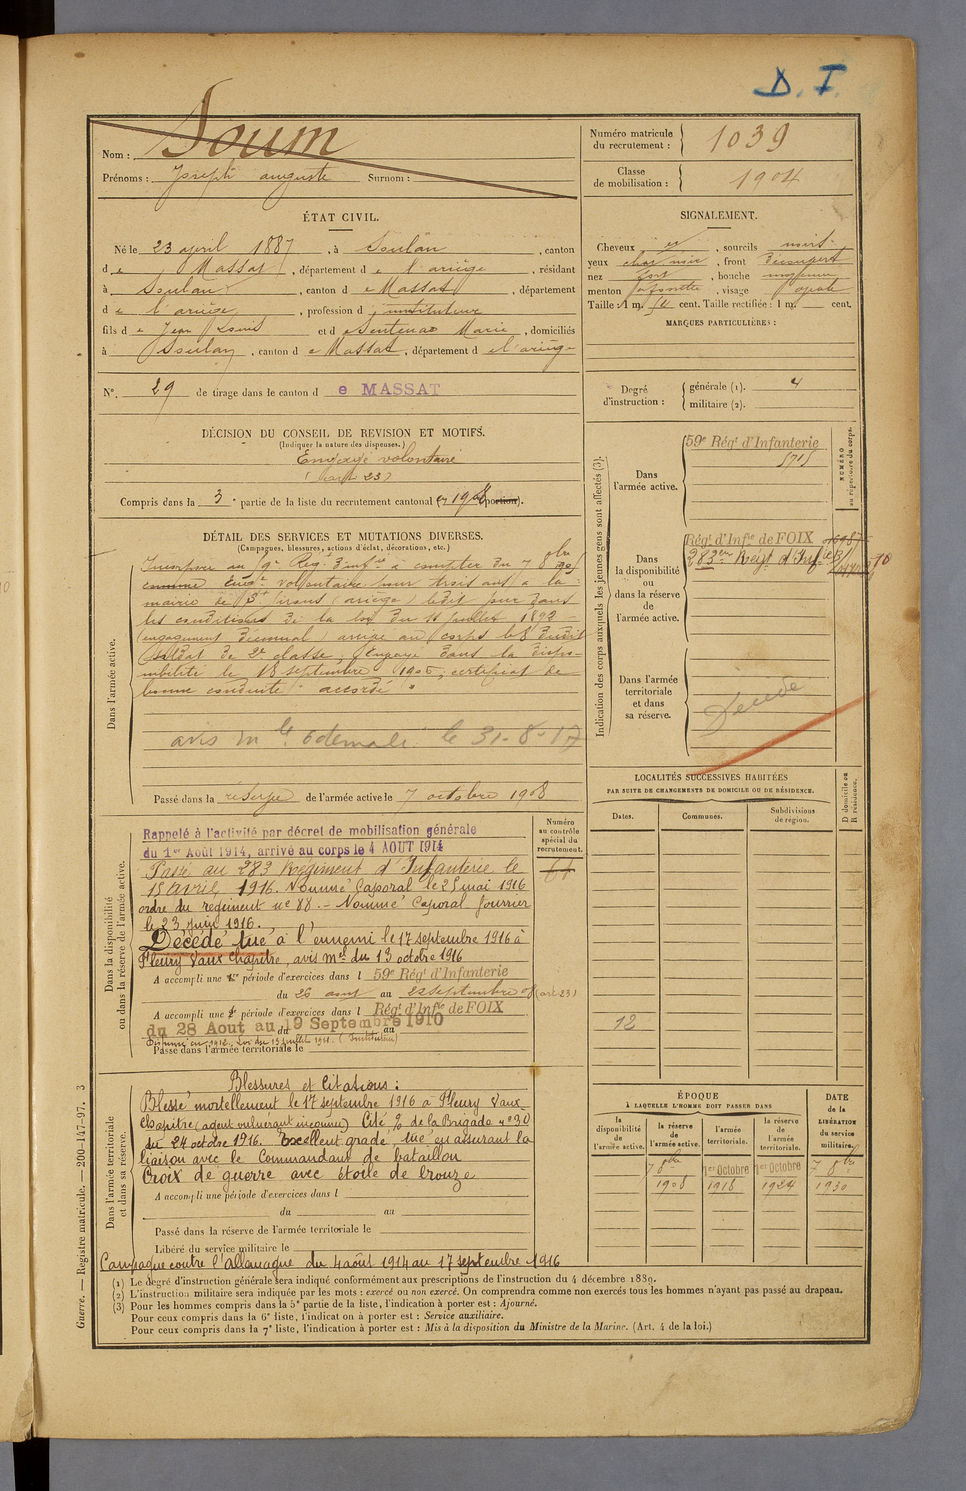 D. I.
Nom : Soum
Prénoms : Joseph auguste Surnom :
Numéro matricule du recrutement : 1039
Classe de mobilisation : 1904
ÉTAT CIVIL.
Né le 23 avril 1887, à Soulan, canton
de Massat, département de l'ariège, résidant
à Soulan, canton de Massat, département
de l'ariège, profession d'instituteur
fils de Jean Louis et de Sentenac Marie, domiciliés
à Soulan, canton de Massat, département de l'ariège
N°. 29 de tirage dans le canton de MASSAT
DÉCISION DU CONSEIL DE REVISION ET MOTIFS.
(Indiquer la nature des dispenses.)
Engagé volontaire
(art 23)
Compris dans la 3e partie de la liste du recrutement cantonal en 1908
DÉTAIL DES SERVICES ET MUTATIONS DIVERSES.
(Campagnes, blessures, actions d'éclat, décorations, etc.)
Dans l'armée active.
au 9e Rég. d'infie à compter du 7 8bre
comme Engé volontaire pour trois ans à la
mairie de St Girons (ariège) ledit jour dans
les conditions de la loi du 11 juillet 1892
(engagement ) arrivé au corps le 8 dudit
soldat de 2e classe. Envoyé dans la dispo-
nibilité le 18 septembre 1906, certificat de
bonne conduite " accordé "
avis le 31-8-17
Passé dans la réserve de l'armée active le 7 octobre 1908
Dans la disponibilité ou dans la réserve de l'armée active.
Numéro au contrôle spécial du recrutement.
Rappelé à l'activité par décret de mobilisation générale
du 1er Août 1914, arrivé au corps le 4 AOUT 1914
Passé au 283 Régiment d'Infanterie le
15 avril 1916. Nommé Caporal le 25 mai 1916
ordre du régiment n° 88. - Nommé Caporal fourrier
le 23 juin 1916.
Décédé tué à l'ennemi le 17 septembre 1916 à
Fleury Vaux Chapitre, avis mel du 13 octobre 1916
A accompli une 1re période d'exercices dans l 59e Régt d'Infanterie
du 26 aout au 22 septembre 08 (art 23)
A accompli une 2e période d'exercices dans l Régt d'Infie de FOIX
du 28 Aout au 19 Septembre 1910
Dispensé en 1912. Loi du 13 juillet 1911. (Instituteur)
Passé dans l'armée territoriale le
Dans l'armée territoriale et dans sa réserve.
Blessures et Citations :
Blessé mortellement le 17 septembre 1916 à Fleury Vaux-
Chapitre (agent vulnérant inconnu) Cité % de la Brigade n° 30
du 24 octobre 1916. Excellent gradé, tué en assurant la
liaison avec le Commandant de bataillon
Croix de guerre avec étoile de bronze
A accompli une période d'exercices dans l
du au
Passé dans la réserve de l'armée territoriale le
Libéré du service militaire le
Campagne contre l'Allemagne du 4 août 1914 au 17 septembre 1916
SIGNALEMENT.
Cheveux et, sourcils noirs
yeux chat. noir, front découvert
nez fort, bouche moyenne
menton à fossette, visage ovale
Taille : 1 m. cent. Taille rectifiée : 1 m. cent.
MARQUES PARTICULIÈRES :
Degré d'instruction : générale (1). 4
militaire (2).
Indication des corps auxquels les jeunes gens sont affectés (3).
NUMÉRO au répertoire du corps.
Dans l'armée active.
59e Régt d'Infanterie
5715
Dans la disponibilité ou dans la réserve de l'armée active.
Régt d'Infie de FOIX
283eme Regt d'Infie
Dans l'armée territoriale et dans sa réserve.
Décédé
LOCALITÉS SUCCESSIVES HABITÉES
PAR SUITE DE CHANGEMENTS DE DOMICILE OU DE RÉSIDENCE.
Dates. Communes. Subdivisions de région. D domicile ou R résidence.
12
ÉPOQUE
À LAQUELLE L'HOMME DOIT PASSER DANS
la disponibilité de l'armée active. la réserve de l'armée active. l'armée territoriale. la réserve de l'armée territoriale.
DATE de la LIBÉRATION du service militaire.
7 8bre 1er Octobre 1er Octobre 7 8bre
1908 1918 1924 1930
(1) Le degré d'instruction générale sera indiqué conformément aux prescriptions de l'instruction du 4 décembre 1889.
(2) L'instruction militaire sera indiquée par les mots : exercé ou non exercé. On comprendra comme non exercés tous les hommes n'ayant pas passé au drapeau.
(3) Pour les hommes compris dans la 5e partie de la liste, l'indication à porter est : Ajourné.
Pour ceux compris dans la 6e liste, l'indication à porter est : Service auxiliaire.
Pour ceux compris dans la 7e liste, l'indication à porter est : Mis à la disposition du Ministre de la Marine. (Art. 4 de la loi.)
Guerre. — Registre matricule. — 200-147-97. 3